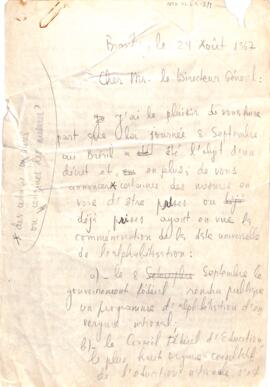 Brasil, le 24 Août 1967
Cher Mr. le Directeur Général:
j'ai le plaisir de vous faire
part que la journée 8 Septembre
au Brésil a été l'objet d'un
décret et, en plus, de vous
certaines des mesures en
voie de être prises ou
déjà prises ayant en vue la
commémoration de la date universelle
de l'alphabétisation:
a) - le 8 Septembre le
gouvernement fédéral rendra publique
un programme d'alphabétisation d'en-
vergure national;
b) - le Conseil Fédéral d'Education,
le plus haut organe consultatif
de l'éducation nationale